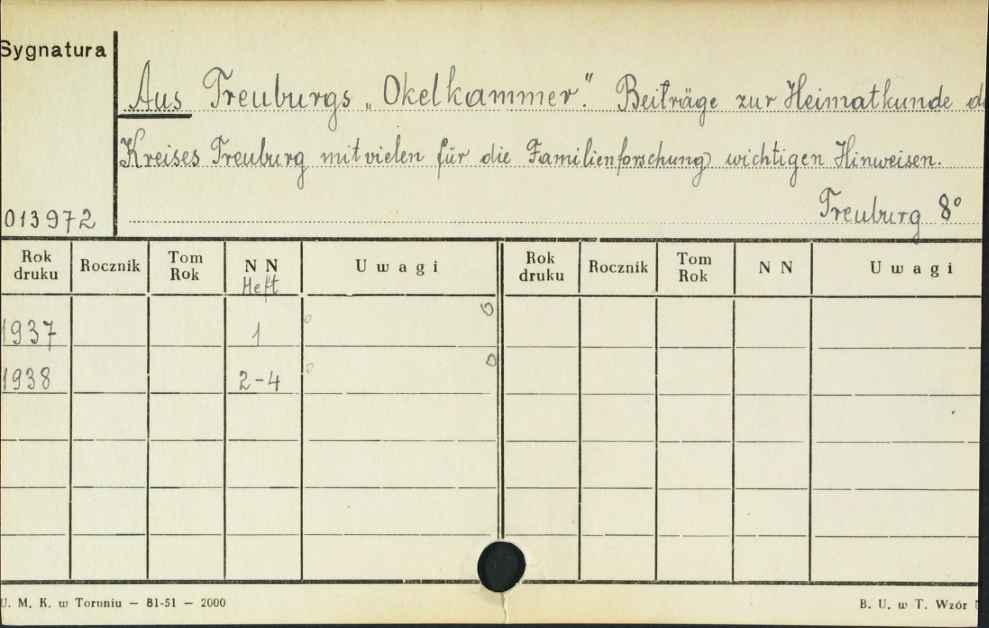 Sygnatura
Aus Treuburgs „Okelkammer." Beiträge zur Heimatkunde
Kreises Treuburg mit vielen für die Familienforschung wichtigen Hinweisen.
013972 Treuburg 8°
Rok druku Rocznik Tom Rok NN Uwagi Rok druku Rocznik Tom Rok NN Uwagi
Heft
1937 1
1938 2-4
U. M. K. w Toruniu — 81-51 — 2000 B. U. w T. Wzór